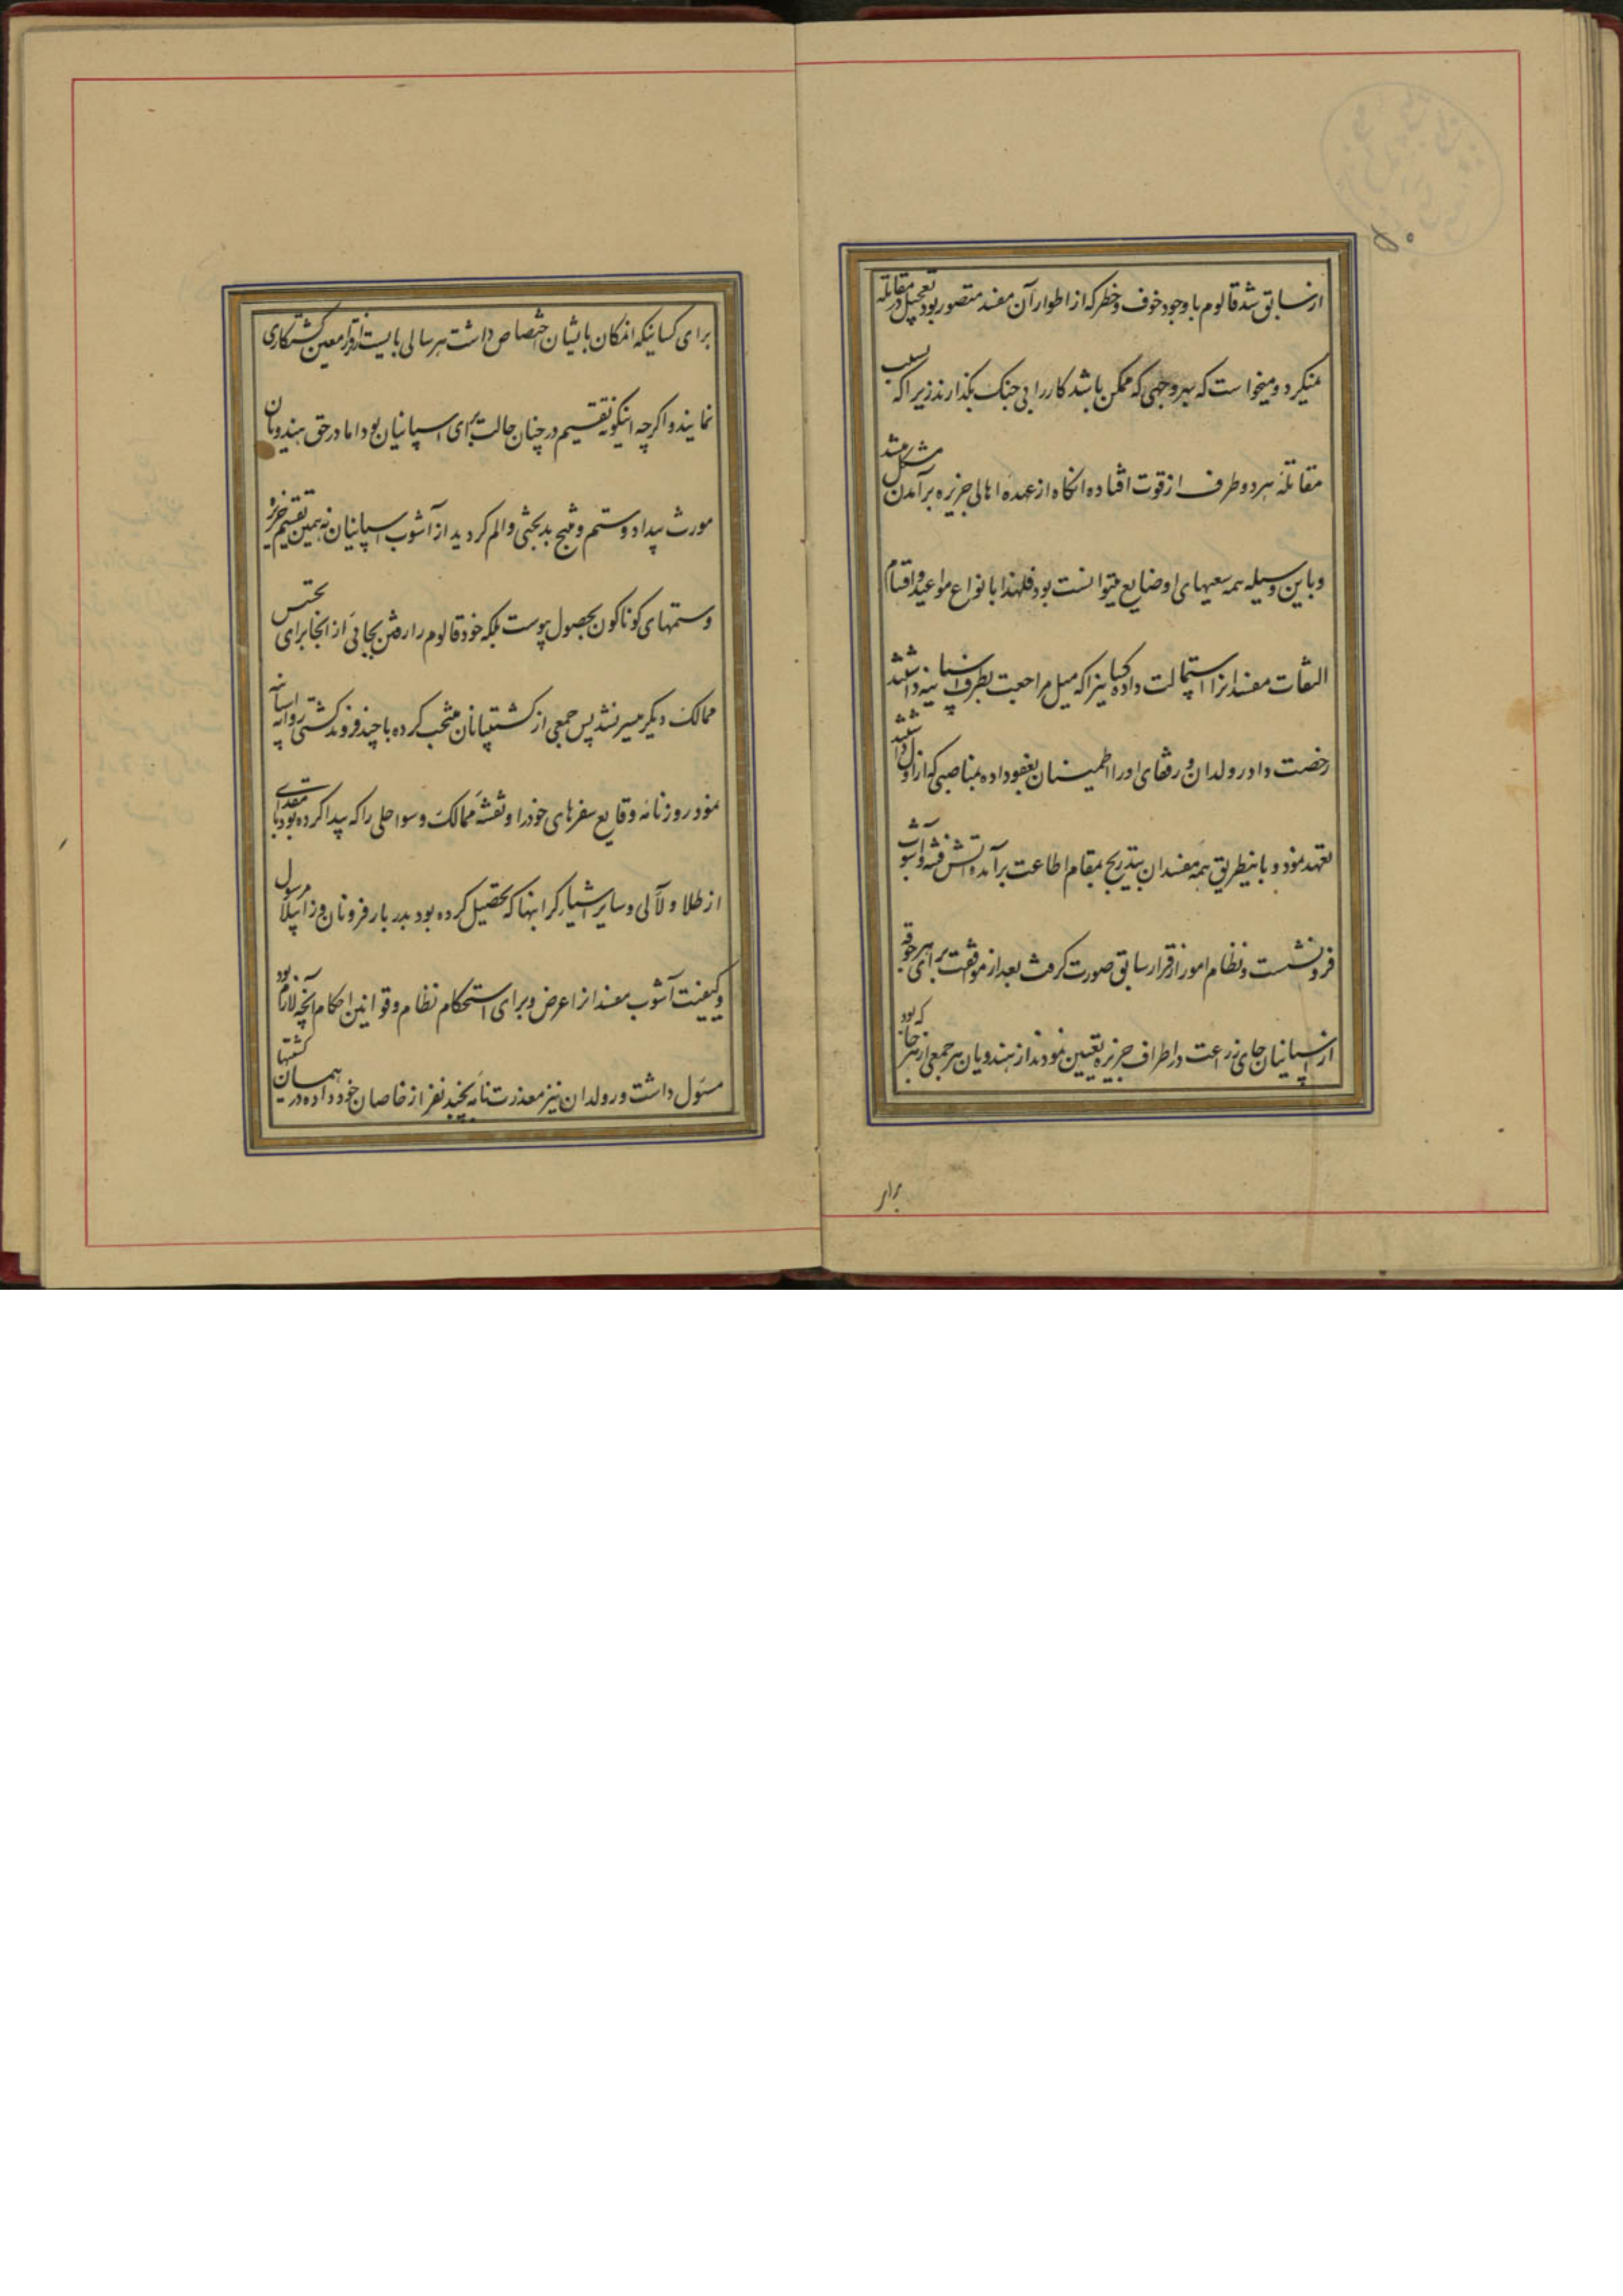 از سابق شد قالوم با وجود خوف و خطر که از اطوار آن مفسد متصور بود تعجیل در مقاتله
نمیکرد و میخواست که بهر وجهی که ممکن باشد کار را بی جنک بکذارند زیرا که بسبب
مقاتلهٔ هر دو طرف از قوت افتاده انکاه از عهدهٔ اهالی جزیره برآمدن مشکل میشد
و باین وسیله همه سعیهای او ضایع میتوانست بود فلهذا بانواع مواعید و اقسام
التفات مفسدانرا استمالت داده کسانیرا که میل مراجعت بطرف اسپانیه داشتند
رخصت داد رولدان و رفقای او را اطمینان بعفو داده بمناصبی که از اول داشتند
تعهد نمود و باینطریق همه مفسدان بتدریج بمقام اطاعت برآمد و آتش فتنه و آشوب
فرو نشست و نظام امور از قرار سابق صورت کرفت بعد از موافقت برای هر جوقه
از اسپانیان جای زراعت در اطراف جزیره تعیین نمودند از هندویان هر جمعی از هر جا که بود
برای
برای کسانیکه امکان بایشان اختصاص داشت هر سالی بایست از قرار معین کشتکاری
نمایند و اکرچه اینکونه تقسیم در چنان حالت برای اسپانیان بود اما در حق هندویان
مورث بیداد و ستم و منتج بدبختی و الم کردید از آشوب اسپانیان نه همین تقسیم جزیره
و ستمهای کوناکون بحصول پیوست بلکه خود قالوم را رفتن بجائی از انجا برای تجسس
ممالک دیکر میسر نشد پس جمعی از کشتیبانان منتخب کرده با چند فروند کشتی روانه اسپانیه
نمود روزنامهٔ وقایع سفرهای خود را و نقشهٔ ممالک و سواحلی را که پیدا کرده بود با مقداری
از طلا و لآلی و سایر اشیاء کرانبها که تحصیل کرده بود بدربار فرونان و زابیلا مرسول
و کیفیت آشوب مفسدانرا عرض و برای استحکام نظام و قوانین احکام آنچه لازم بود
مسئول داشت و رولدان نیز معذرت نامه بچند نفر از خاصان خود داده در همان کشتیها